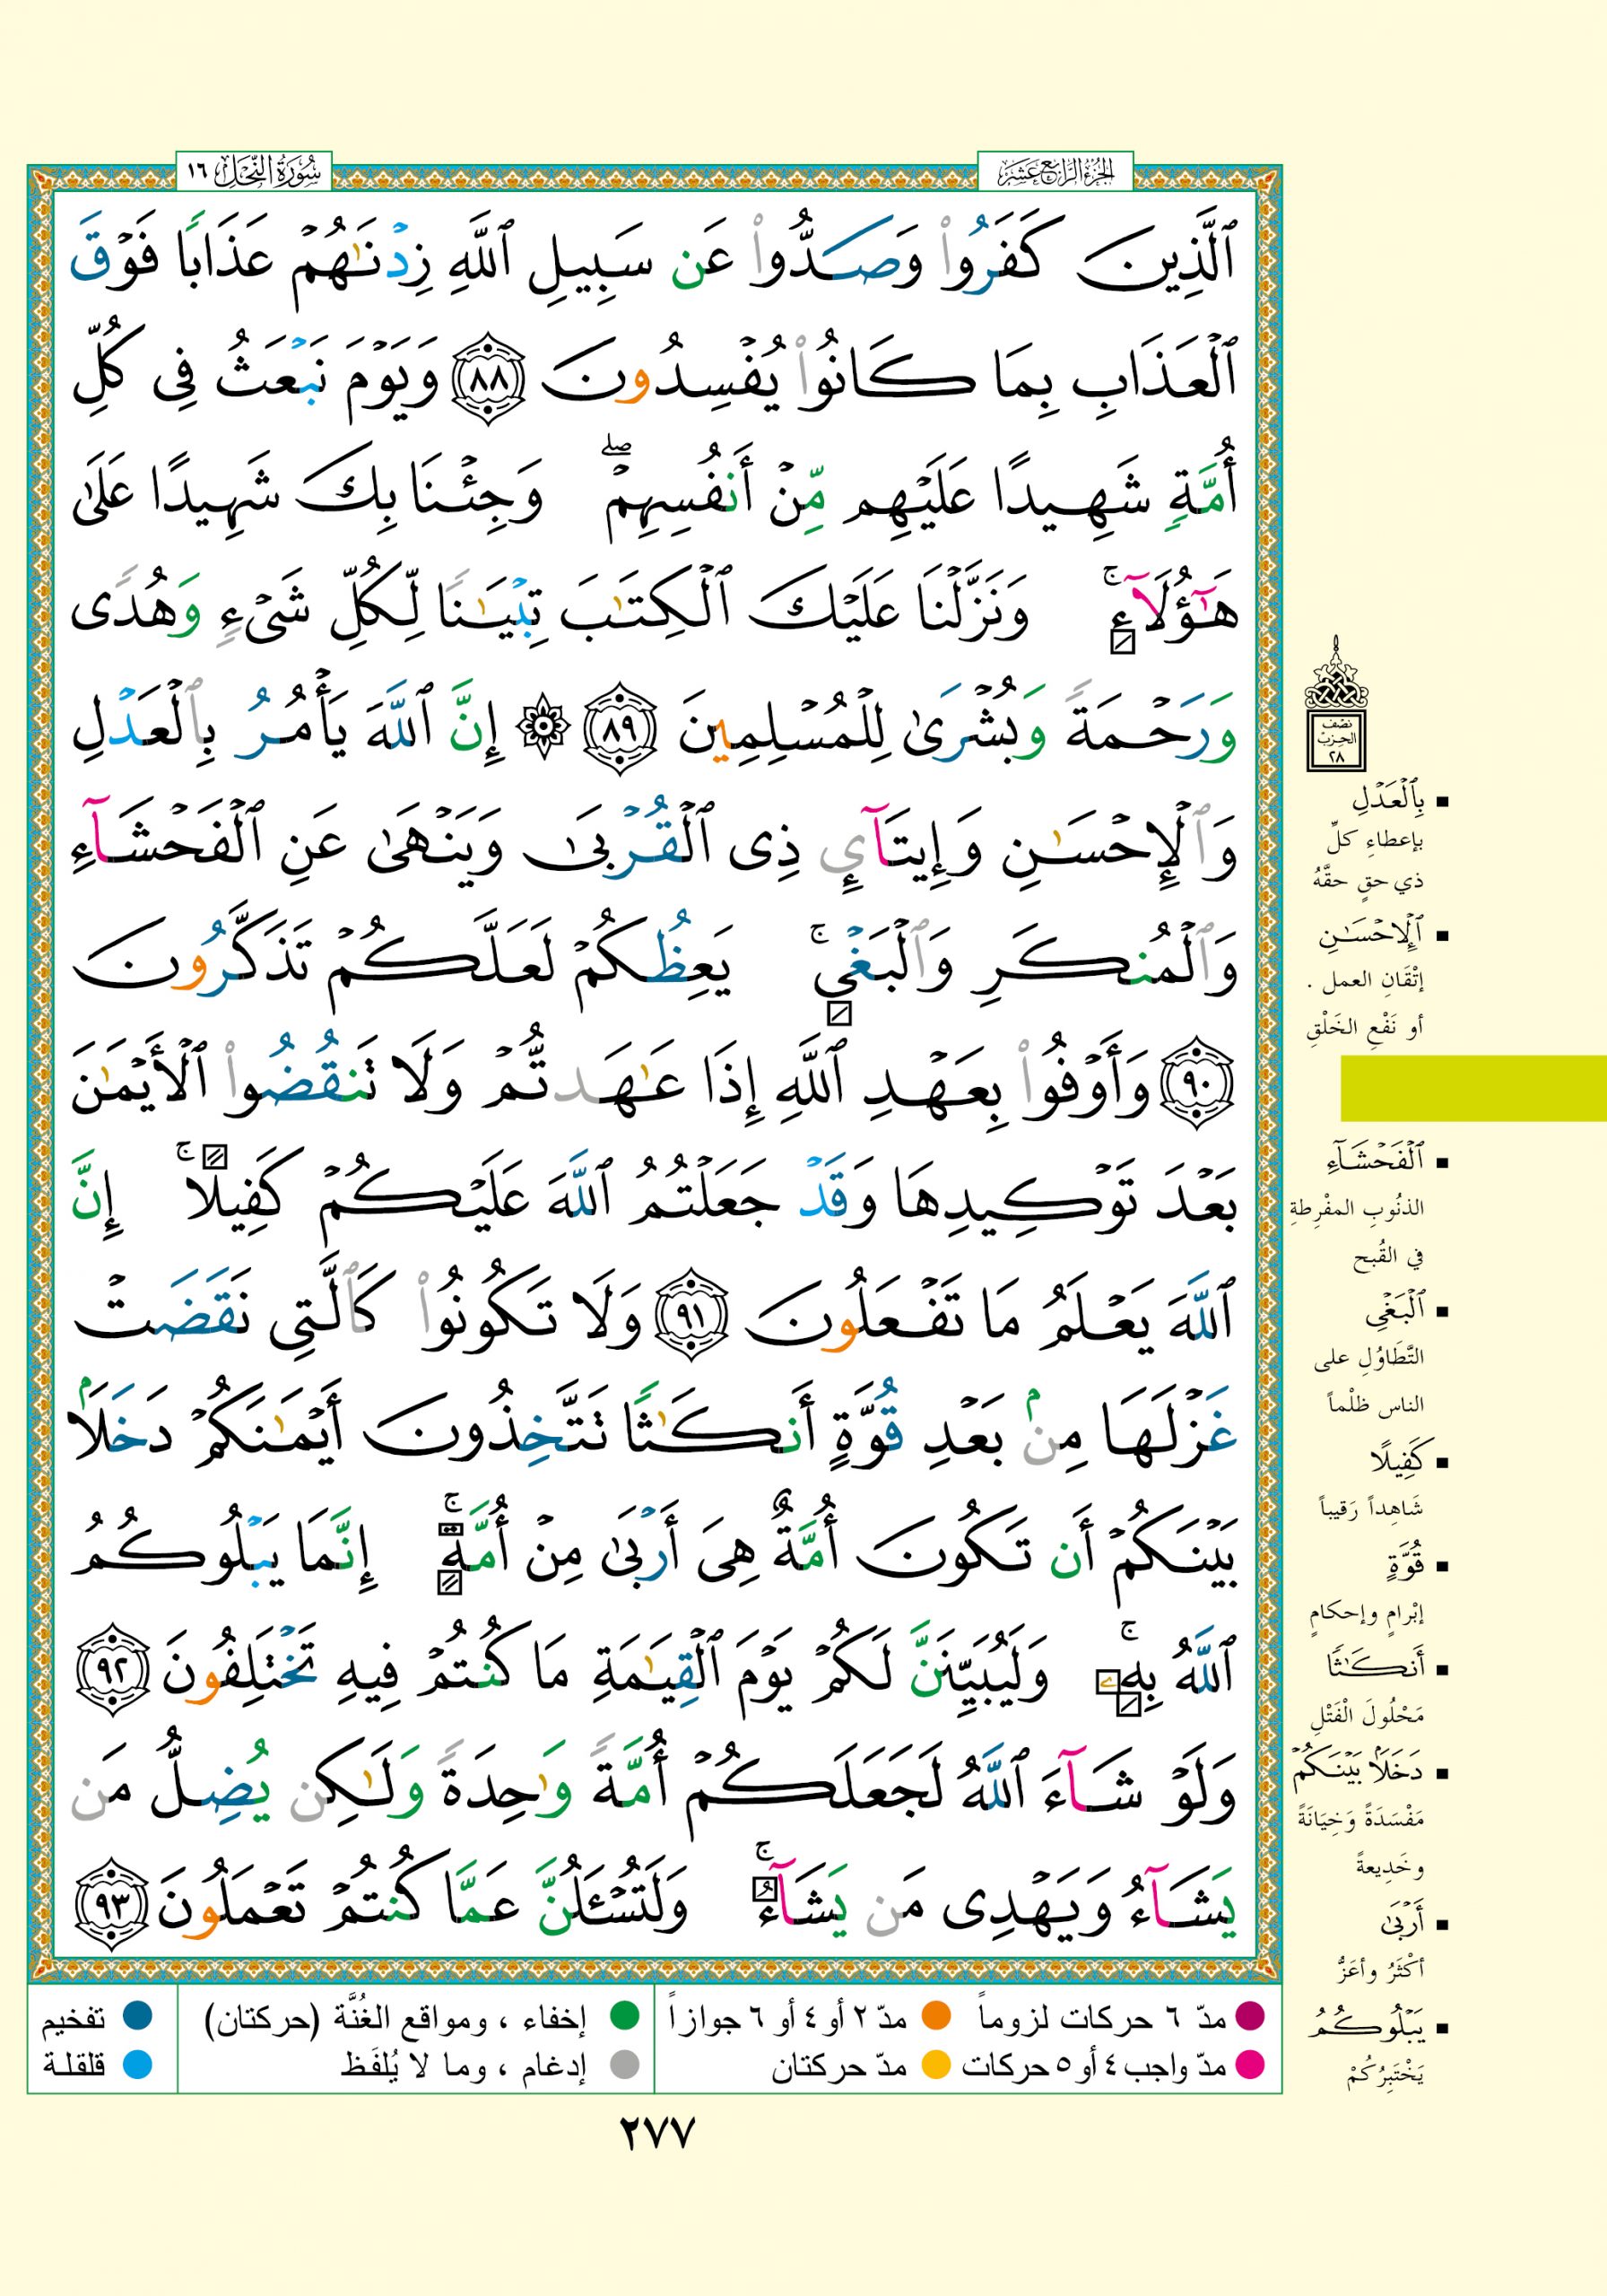 الجُزْءُ الرَّابِعَ عَشَرَ
سُورَةُ النَّحْلِ ١٦
ٱلَّذِينَ كَفَرُوا۟ وَصَدُّوا۟ عَن سَبِيلِ ٱللَّهِ زِدْنَـٰهُمْ عَذَابًا فَوْقَ
ٱلْعَذَابِ بِمَا كَانُوا۟ يُفْسِدُونَ ٨٨ وَيَوْمَ نَبْعَثُ فِى كُلِّ
أُمَّةٍ شَهِيدًا عَلَيْهِم مِّنْ أَنفُسِهِمْ ۖ وَجِئْنَا بِكَ شَهِيدًا عَلَىٰ
هَـٰٓؤُلَآءِ ۚ وَنَزَّلْنَا عَلَيْكَ ٱلْكِتَـٰبَ تِبْيَـٰنًا لِّكُلِّ شَىْءٍ وَهُدًى
وَرَحْمَةً وَبُشْرَىٰ لِلْمُسْلِمِينَ ٨٩ ۞ إِنَّ ٱللَّهَ يَأْمُرُ بِٱلْعَدْلِ
وَٱلْإِحْسَـٰنِ وَإِيتَآئِ ذِى ٱلْقُرْبَىٰ وَيَنْهَىٰ عَنِ ٱلْفَحْشَآءِ
وَٱلْمُنكَرِ وَٱلْبَغْىِ ۚ يَعِظُكُمْ لَعَلَّكُمْ تَذَكَّرُونَ
٩٠ وَأَوْفُوا۟ بِعَهْدِ ٱللَّهِ إِذَا عَـٰهَدتُّمْ وَلَا تَنقُضُوا۟ ٱلْأَيْمَـٰنَ
بَعْدَ تَوْكِيدِهَا وَقَدْ جَعَلْتُمُ ٱللَّهَ عَلَيْكُمْ كَفِيلًا ۚ إِنَّ
ٱللَّهَ يَعْلَمُ مَا تَفْعَلُونَ ٩١ وَلَا تَكُونُوا۟ كَٱلَّتِى نَقَضَتْ
غَزْلَهَا مِنۢ بَعْدِ قُوَّةٍ أَنكَـٰثًا تَتَّخِذُونَ أَيْمَـٰنَكُمْ دَخَلًۢا
بَيْنَكُمْ أَن تَكُونَ أُمَّةٌ هِىَ أَرْبَىٰ مِنْ أُمَّةٍ ۚ إِنَّمَا يَبْلُوكُمُ
ٱللَّهُ بِهِۦ ۚ وَلَيُبَيِّنَنَّ لَكُمْ يَوْمَ ٱلْقِيَـٰمَةِ مَا كُنتُمْ فِيهِ تَخْتَلِفُونَ ٩٢
وَلَوْ شَآءَ ٱللَّهُ لَجَعَلَكُمْ أُمَّةً وَٰحِدَةً وَلَـٰكِن يُضِلُّ مَن
يَشَآءُ وَيَهْدِى مَن يَشَآءُ ۚ وَلَتُسْـَٔلُنَّ عَمَّا كُنتُمْ تَعْمَلُونَ ٩٣
نصف
الحزب
٢٨
بِٱلْعَدْلِ
بإعطاءِ كلِّ
ذي حقٍ حقَّهُ
ٱلْإِحْسَـٰنِ
إتْقَانِ العمل .
أو نَفْعِ الخَلْقِ
ٱلْفَحْشَآءِ
الذنُوبِ المفْرِطةِ
في القُبح
ٱلْبَغْىِ
التَّطَاوُلِ على
الناس ظلْماً
كَفِيلًا
شَاهِداً رَقيباً
قُوَّةٍ
إبْرامٍ وإحكامٍ
أَنكَـٰثًا
مَحْلُولَ الْفَتْلِ
دَخَلًۢا بَيْنَكُمْ
مَفْسَدَةً وَخِيَانَةً
وخَدِيعةً
أَرْبَىٰ
أكْثَرُ وأعَزُّ
يَبْلُوكُمُ
يَخْتَبِرُكُمْ
مدّ ٦ حركات لزوماً مدّ ٢ أو ٤ أو ٦ جوازاً إخفاء ، ومواقع الغُنَّة (حركتان) تفخيم
مدّ واجب ٤ أو ٥ حركات مدّ حركتان إدغام ، وما لا يُلفَظ قلقلة
٢٧٧